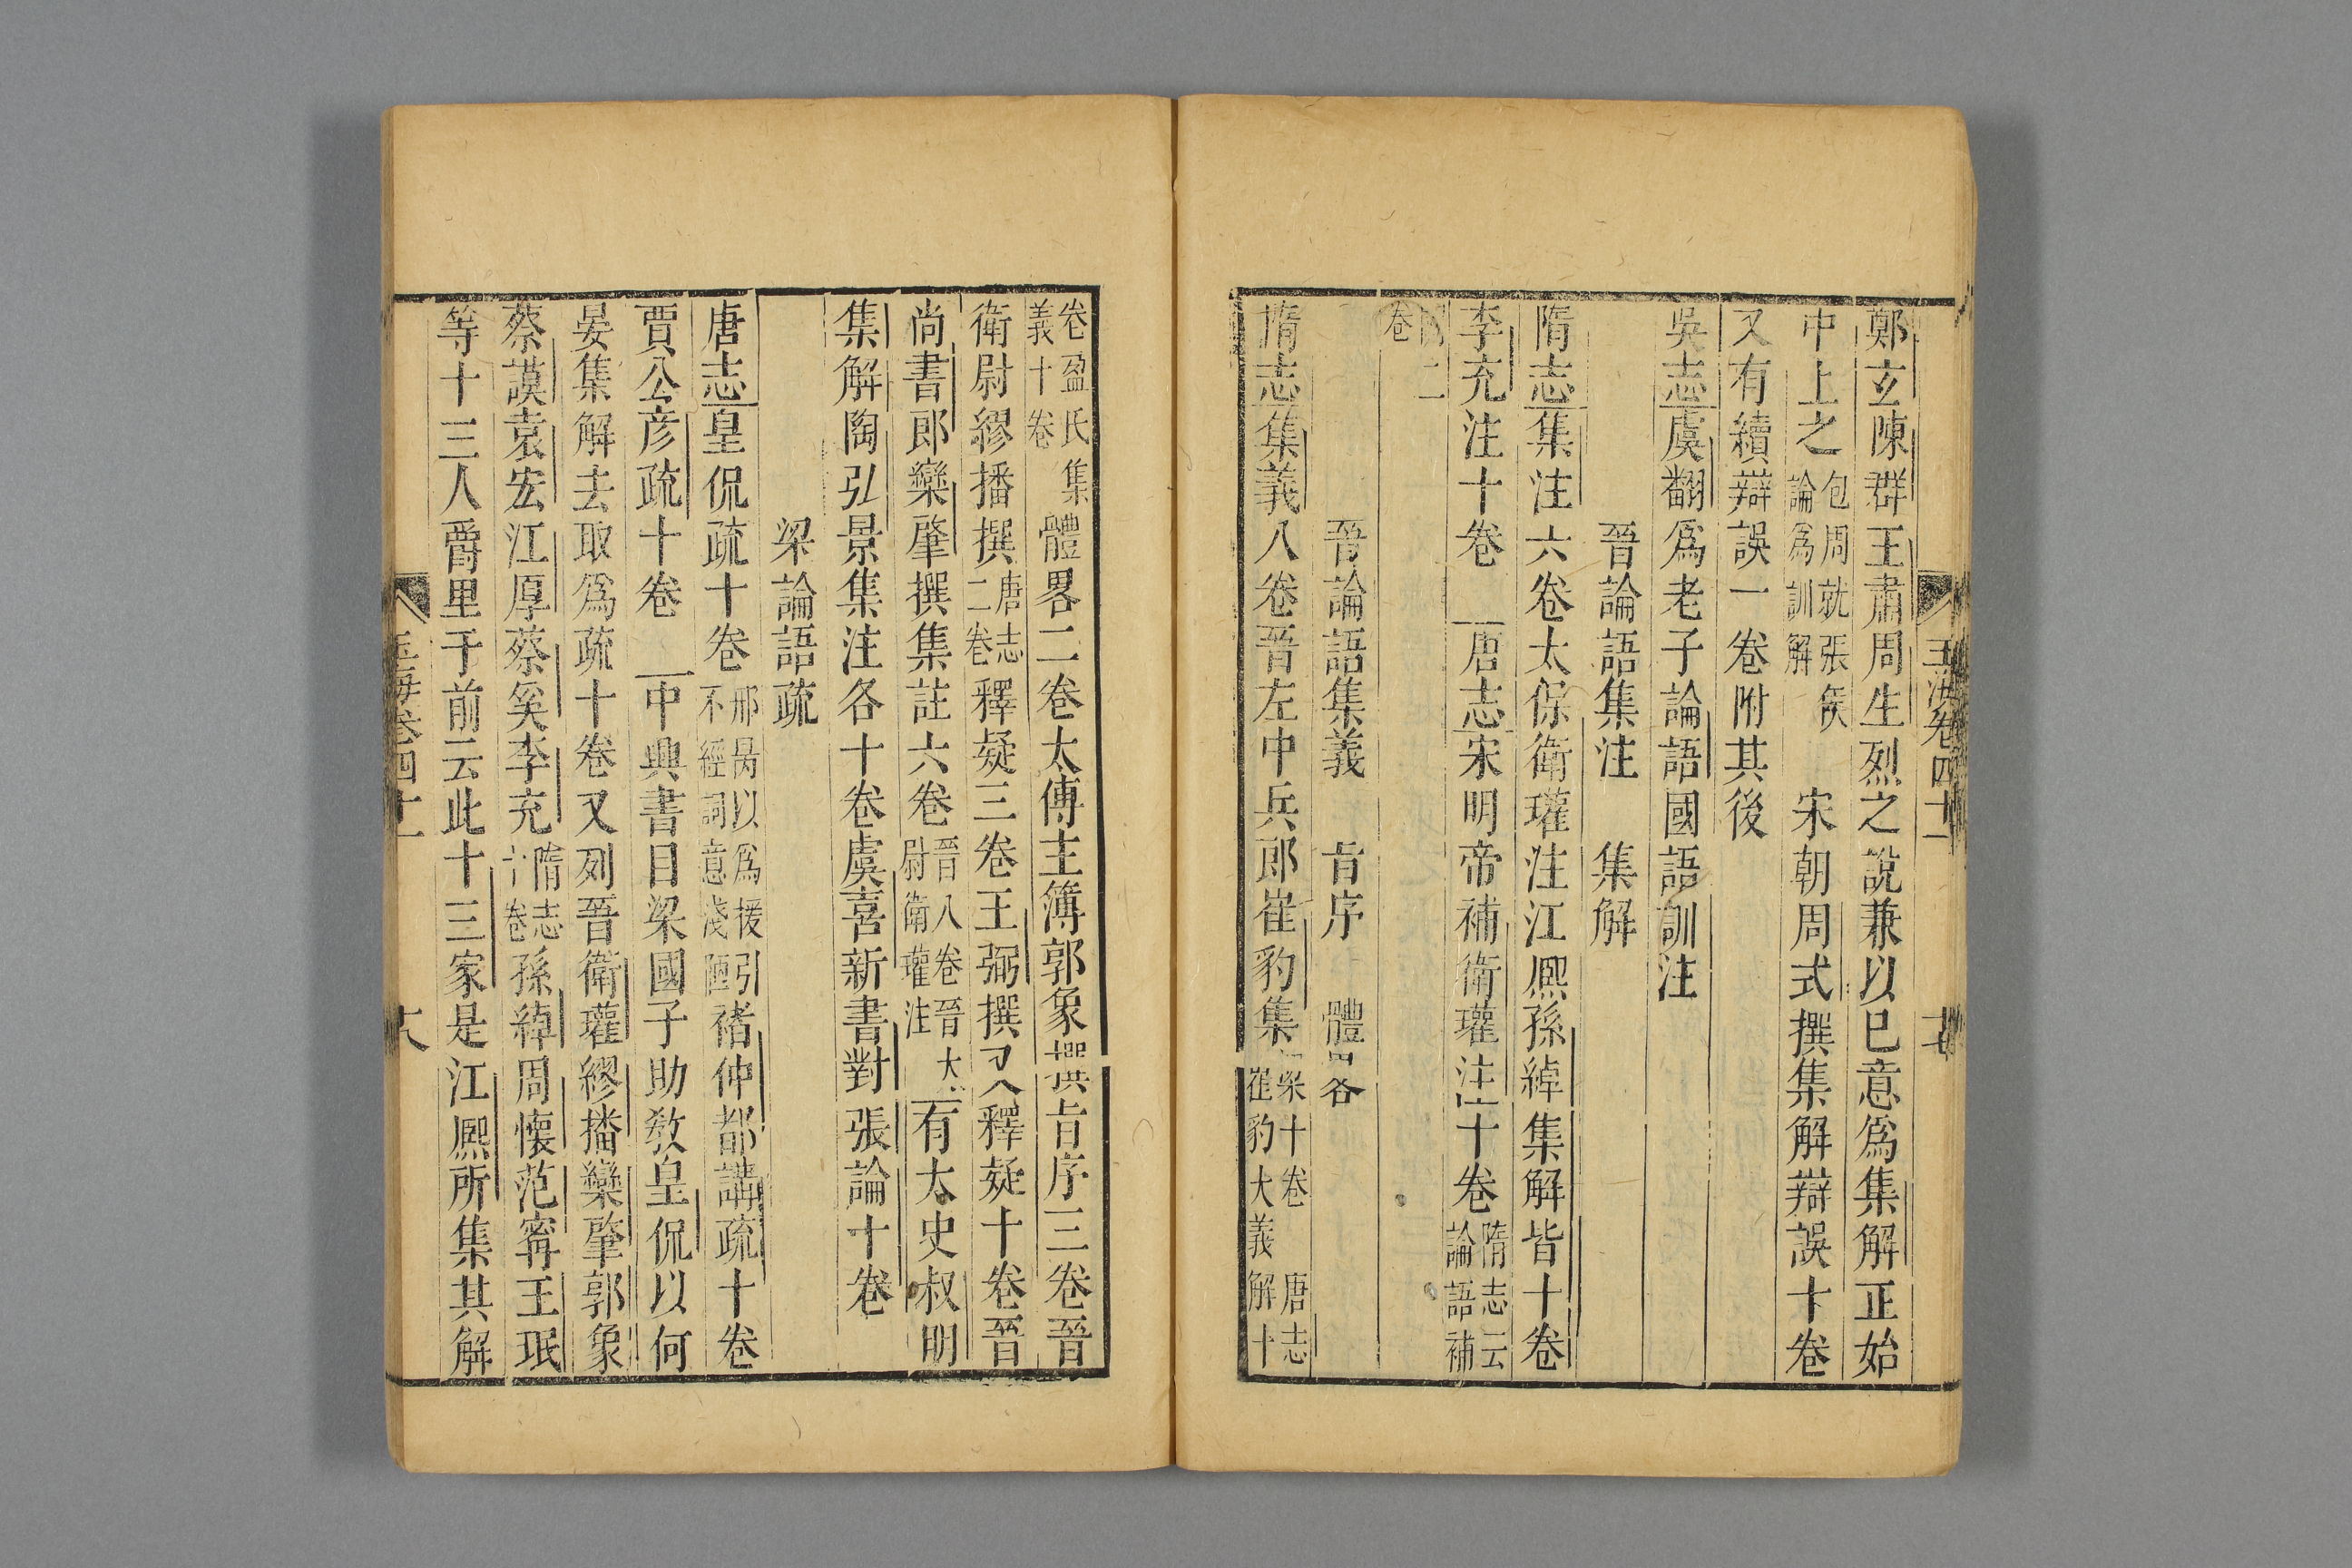 玉海卷四十一
十七
鄭玄陳群王肅周生烈之說兼以巳意爲集解正始
中上之包周就張侯論爲訓解 宋朝周式撰集解辯誤十卷
又有續辯誤一卷附其後
吳志虞翻爲老子論語國語訓注
晉論語集注 集解
隋志集注六卷太保衛瓘注江熈孫綽集解皆十卷
李充注十卷 唐志宋明帝補衛瓘注十卷隋志云論語補
二卷
晉論語集義 旨序 體畧
隋志集義八卷晉左中兵郎崔豹集梁十卷 唐志崔豹大義解十
卷盈氏集義十卷體畧二卷太傅主簿郭象撰旨序三卷晉
衛尉繆播撰唐志二卷釋疑三卷王弼撰又釋疑十卷晉
尚書郎欒肇撰集註六卷晉八卷晉太尉衛瓘注有太史叔明
集解陶弘景集注各十卷虞喜新書對張論十卷
梁論語疏
唐志皇侃疏十卷邢昺以爲援引不經詞意淺陋褚仲都講疏十卷
賈公彦疏十卷 中興書目梁國子助教皇侃以何
晏集解去取爲疏十卷又列晉衛瓘繆播欒肇郭象
蔡謨袁宏江厚蔡奚李充隋志十卷孫綽周懷范甯王珉
等十三人爵里于前云此十三家是江熈所集其解
玉海卷四十一
十八